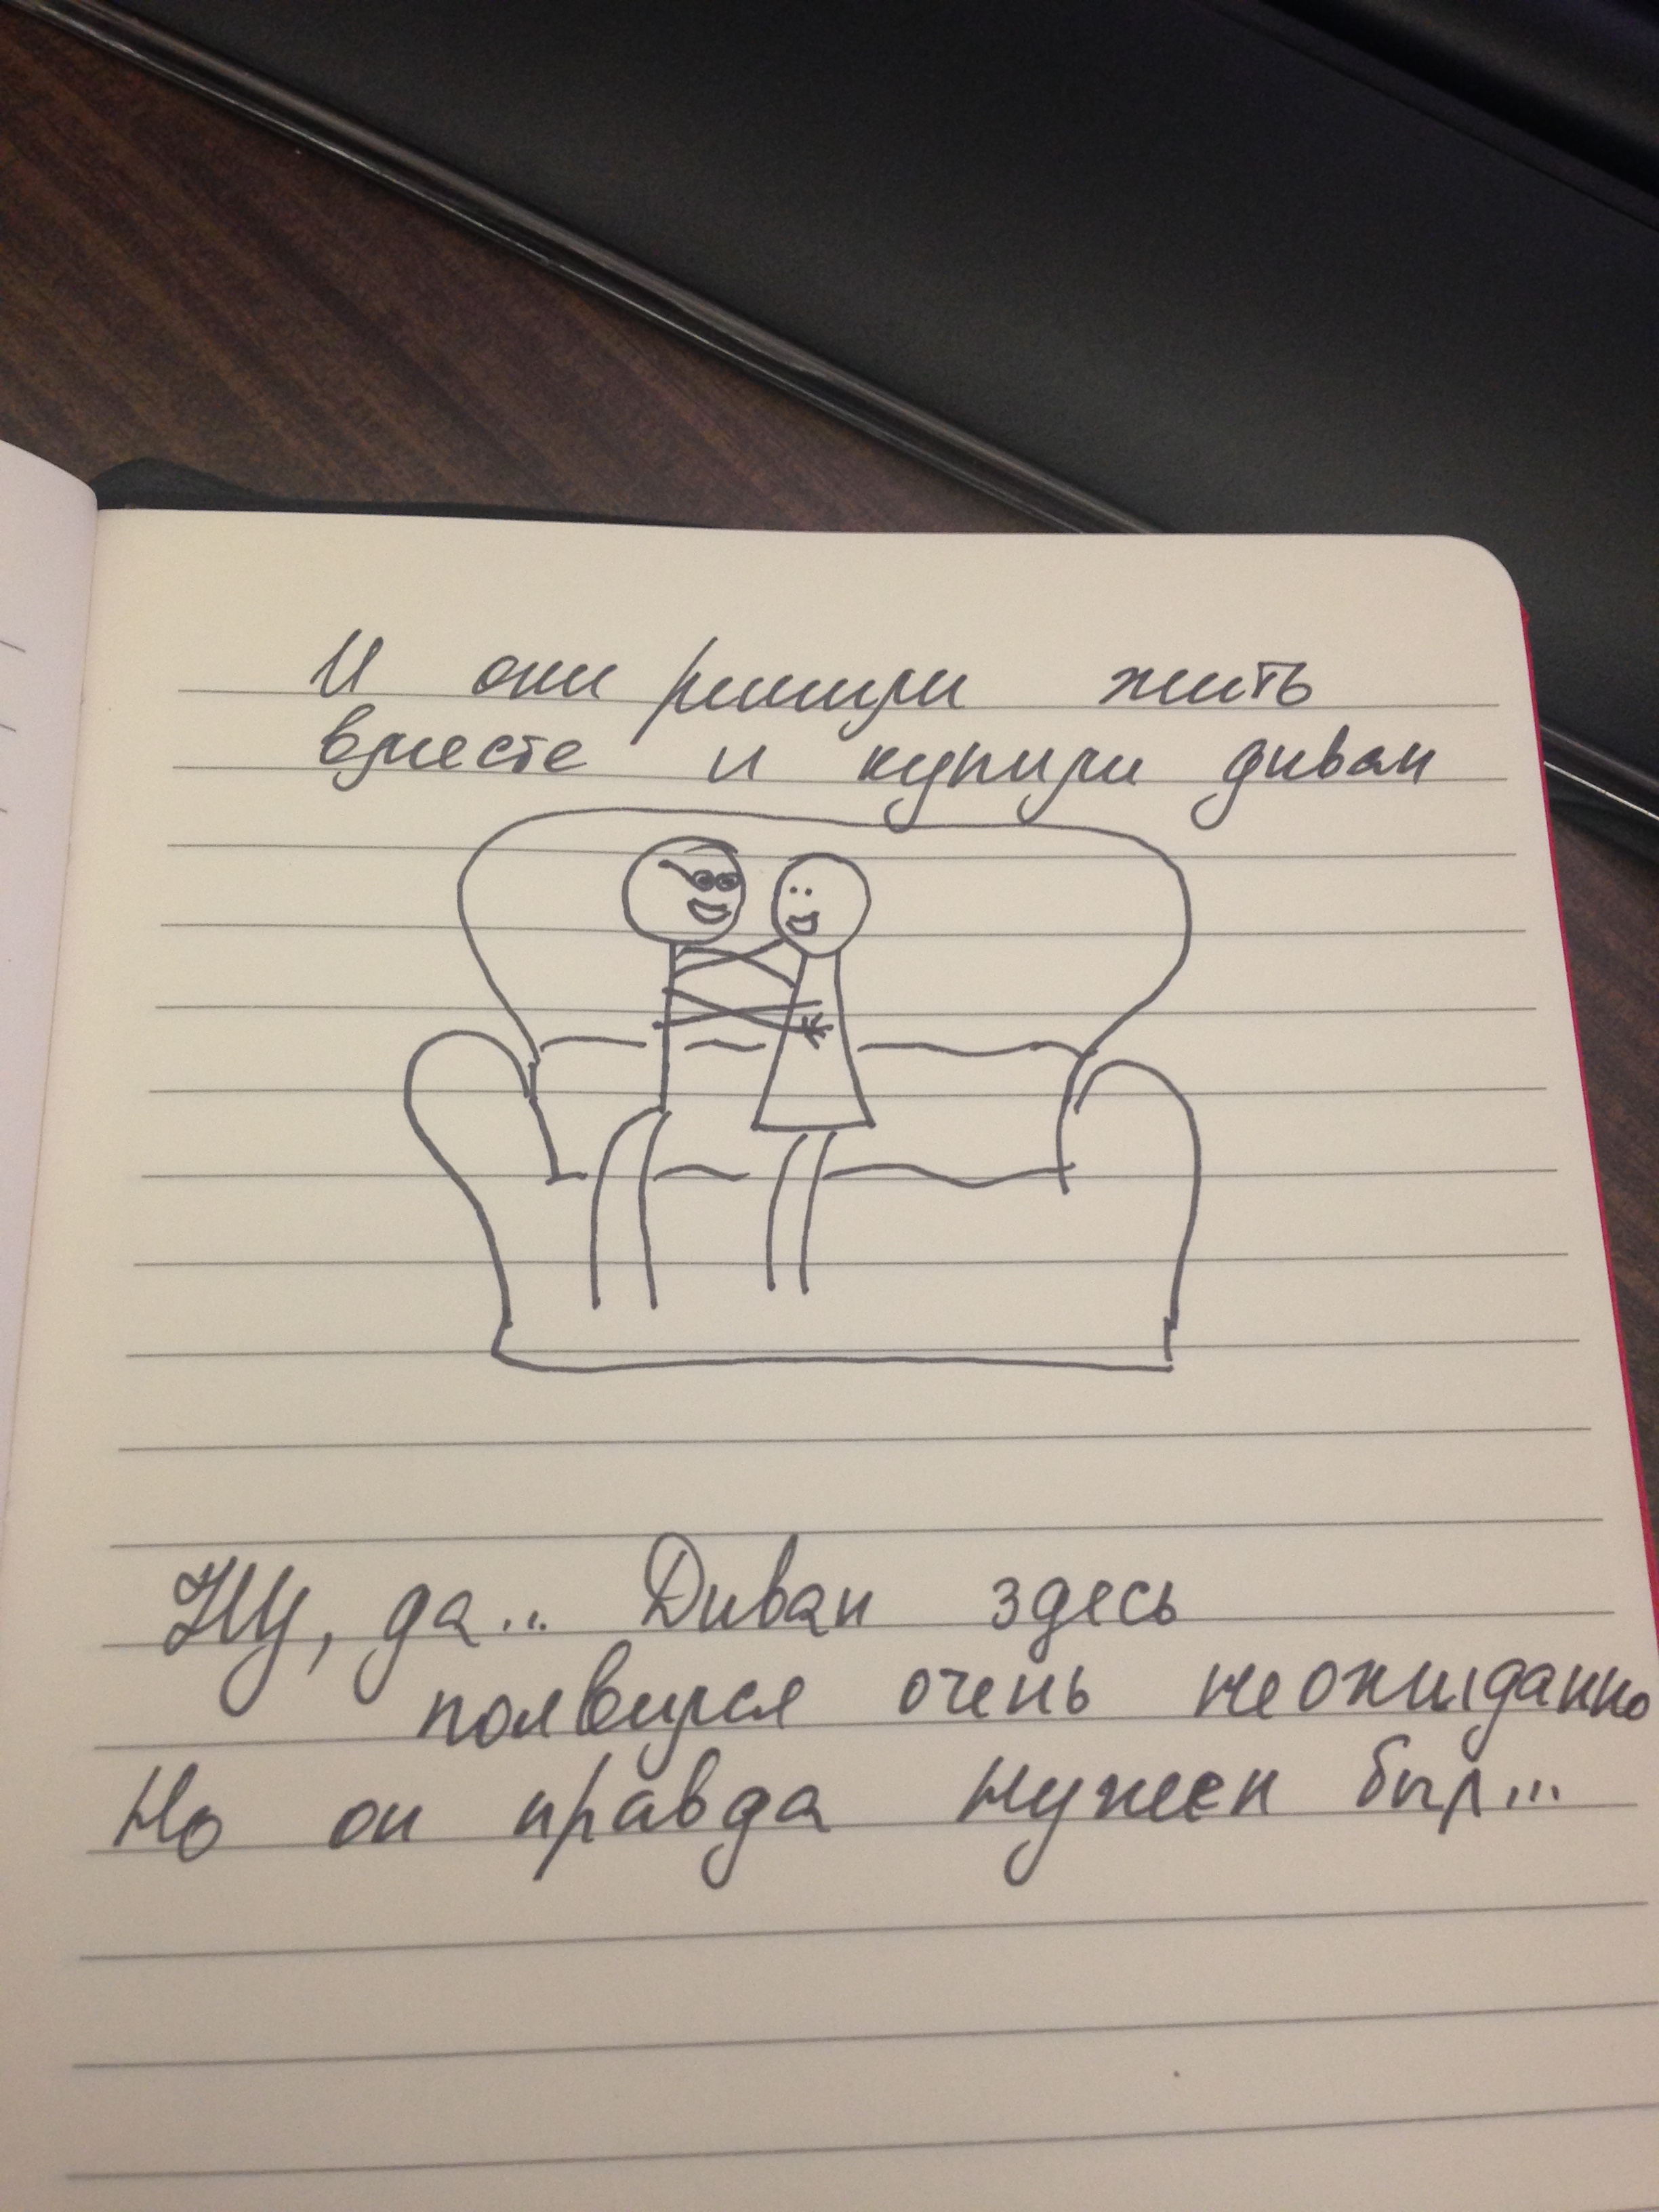 И они решили жить
вместе и купили диван
Ну, да... Диван здесь
появился очень неожиданно
Но он правда нужен был...